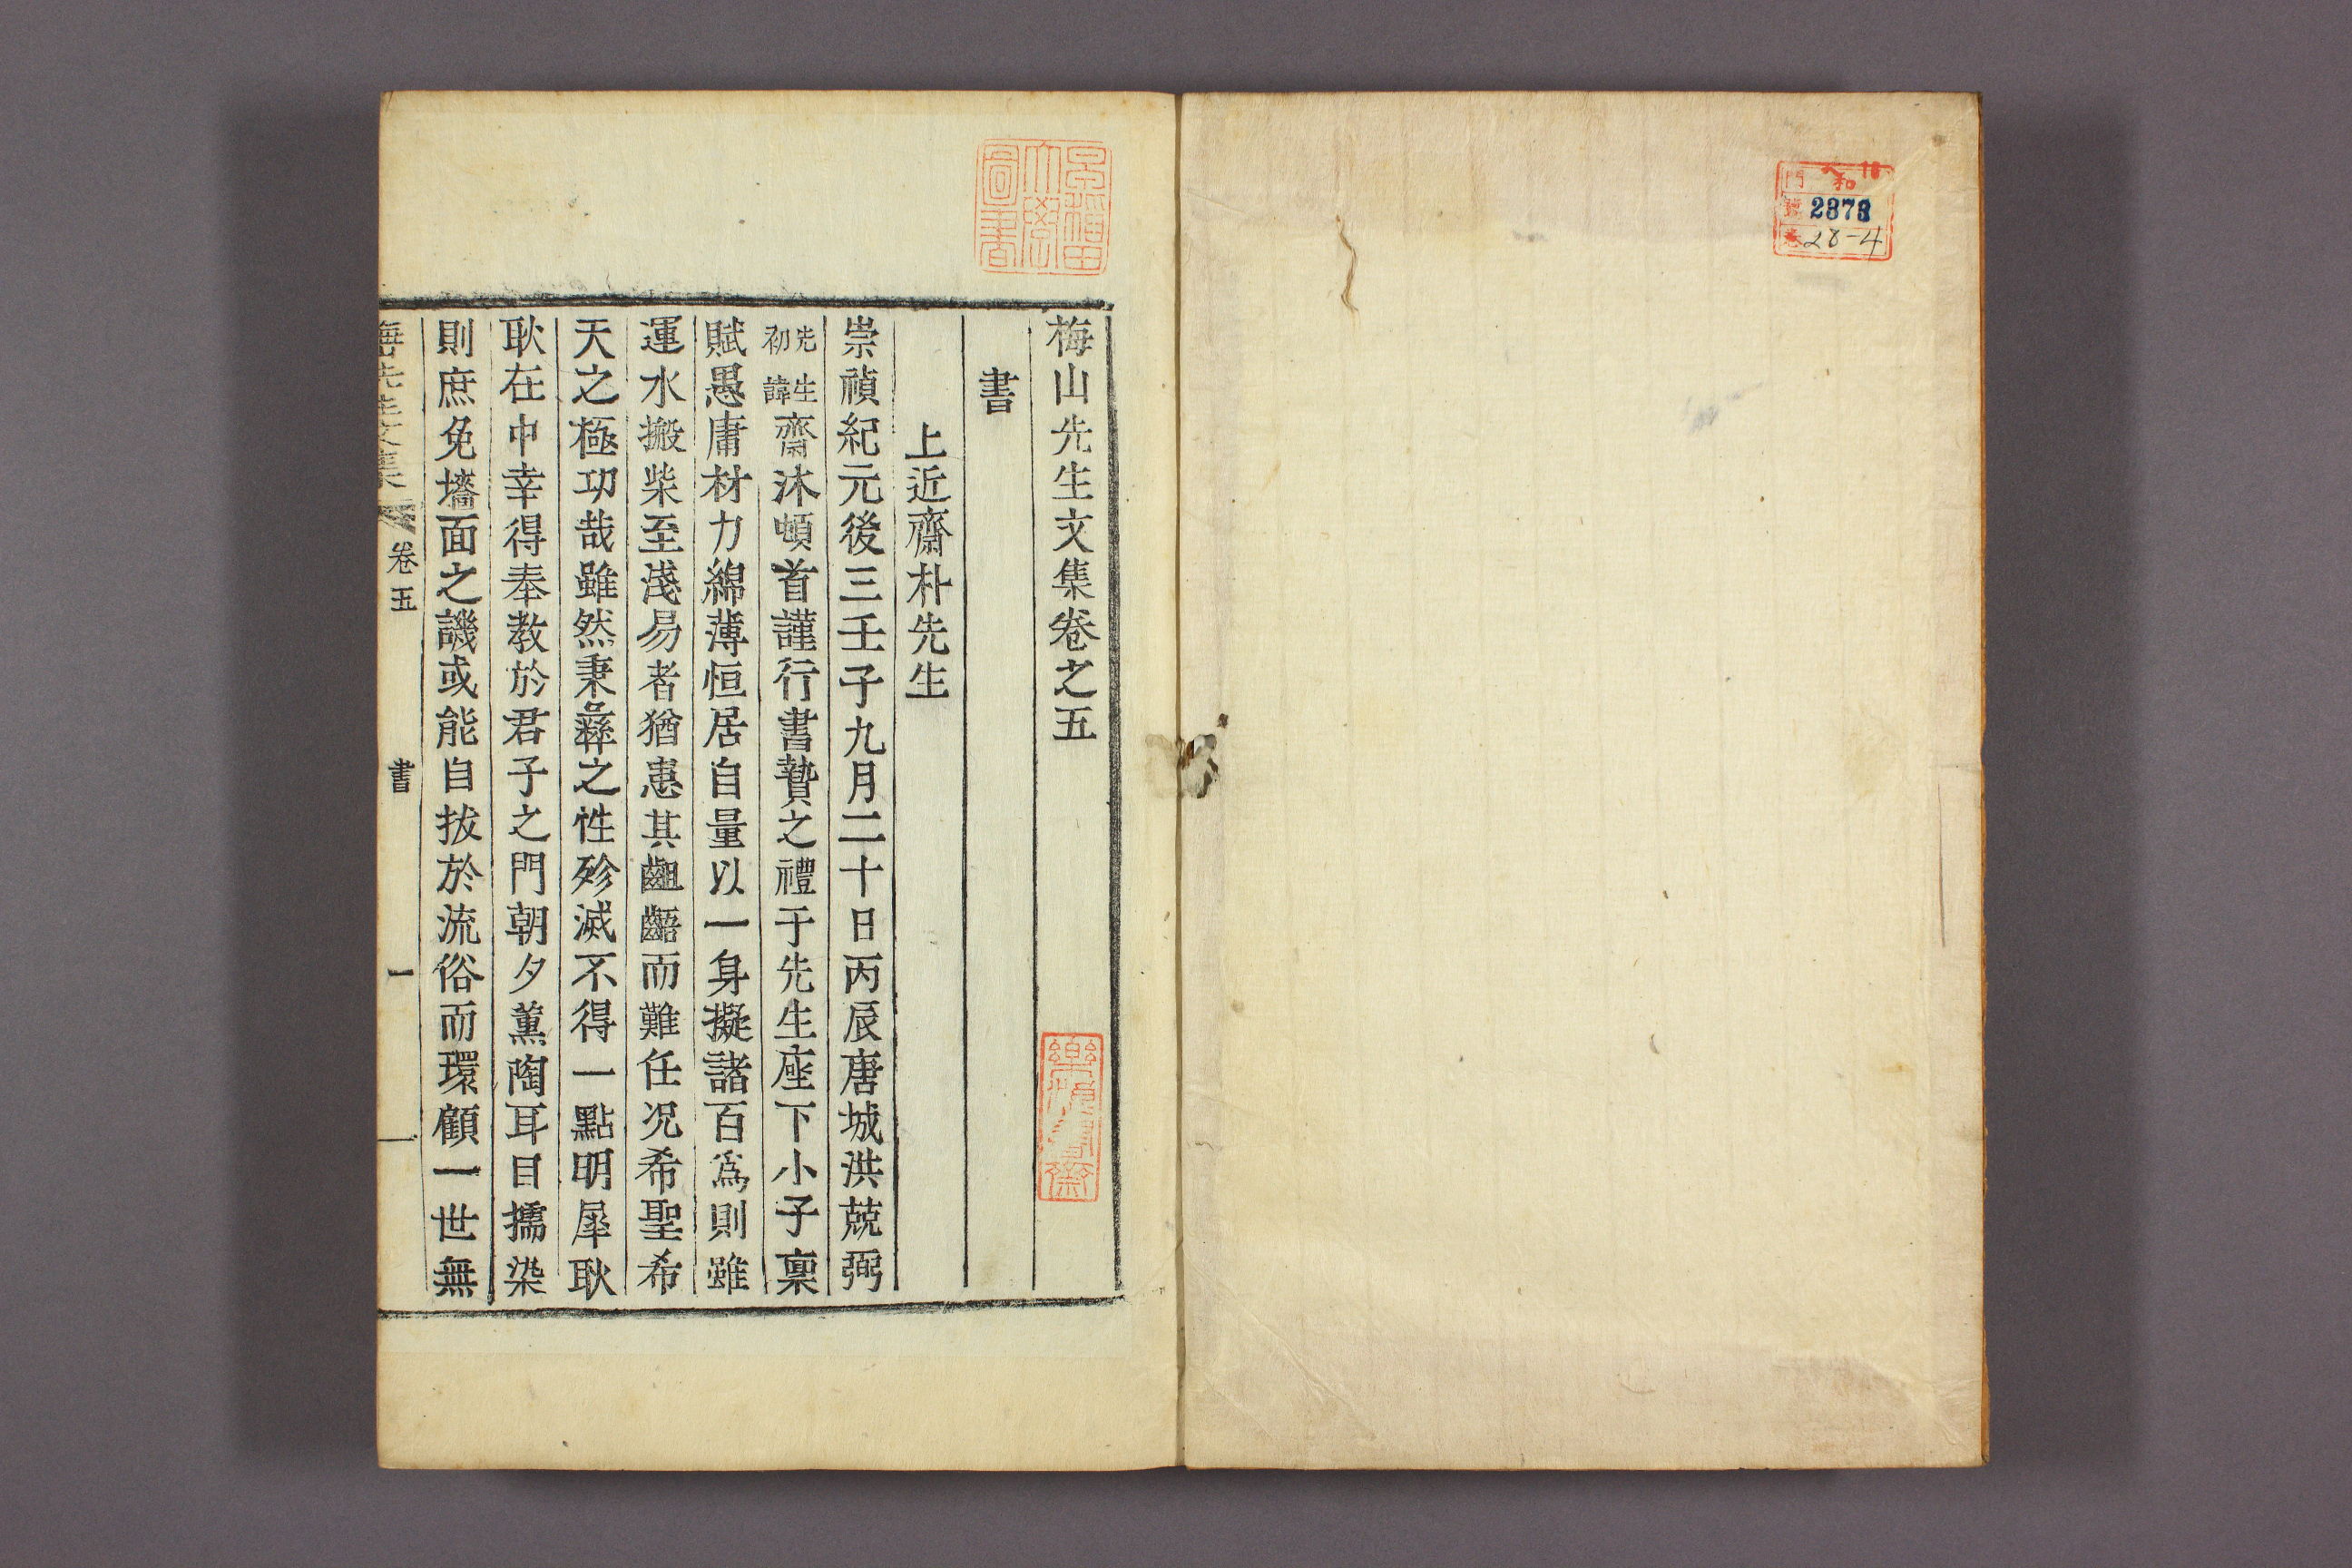 門 和 18
號 2878
卷 28-4
早稲田
大學
圖書
梅山先生文集卷之五
書
上近齋朴先生
崇禎紀元後三壬子九月二十日丙辰唐城洪兢弼
先生初諱齋沐頓首謹行書贄之禮于先生座下小子稟
賦愚庸材力綿薄恒居自量以一身擬諸百爲則雖
運水搬柴至淺易者猶患其齟齬而難任况希聖希
天之極功哉雖然秉彝之性殄滅不得一點明犀耿
耿在中幸得奉教於君子之門朝夕薰陶耳目擩染
則庶免墻面之譏或能自拔於流俗而環顧一世無
梅山先生文集 卷五 書 一